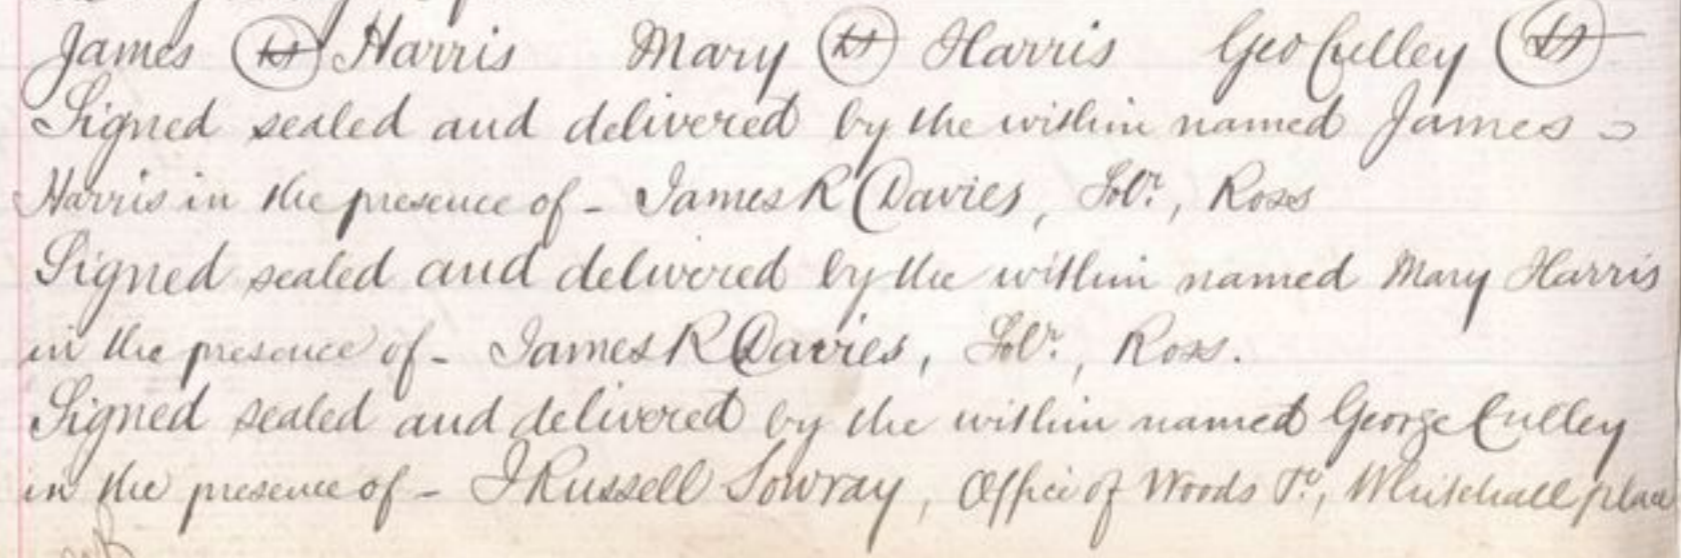 James (LS) Harris Mary (LS) Harris Geo Culley (LS)
Signed sealed and delivered by the within named James
Harris in the presence of - James R Davies, Solr., Ross
Signed sealed and delivered by the within named Mary Harris
in the presence of - James R Davies, Solr., Ross.
Signed sealed and delivered by the within named George Culley
in the presence of - J Russell Sowray, Office of Woods &c, Whitehall place